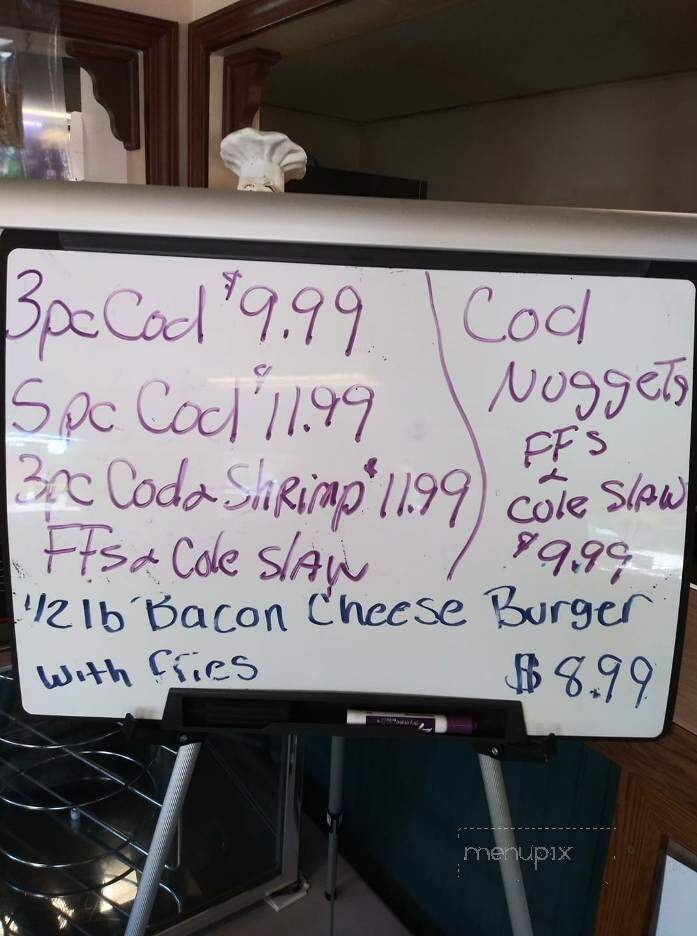 3pc Cod $9.99
5pc Cod $11.99
3pc Cod & Shrimp $11.99
FFs & Cole Slaw
Cod
Nuggets
FFs
&
Cole Slaw
$9.99
1/2 lb Bacon Cheese Burger
with fries $8.99
menupix